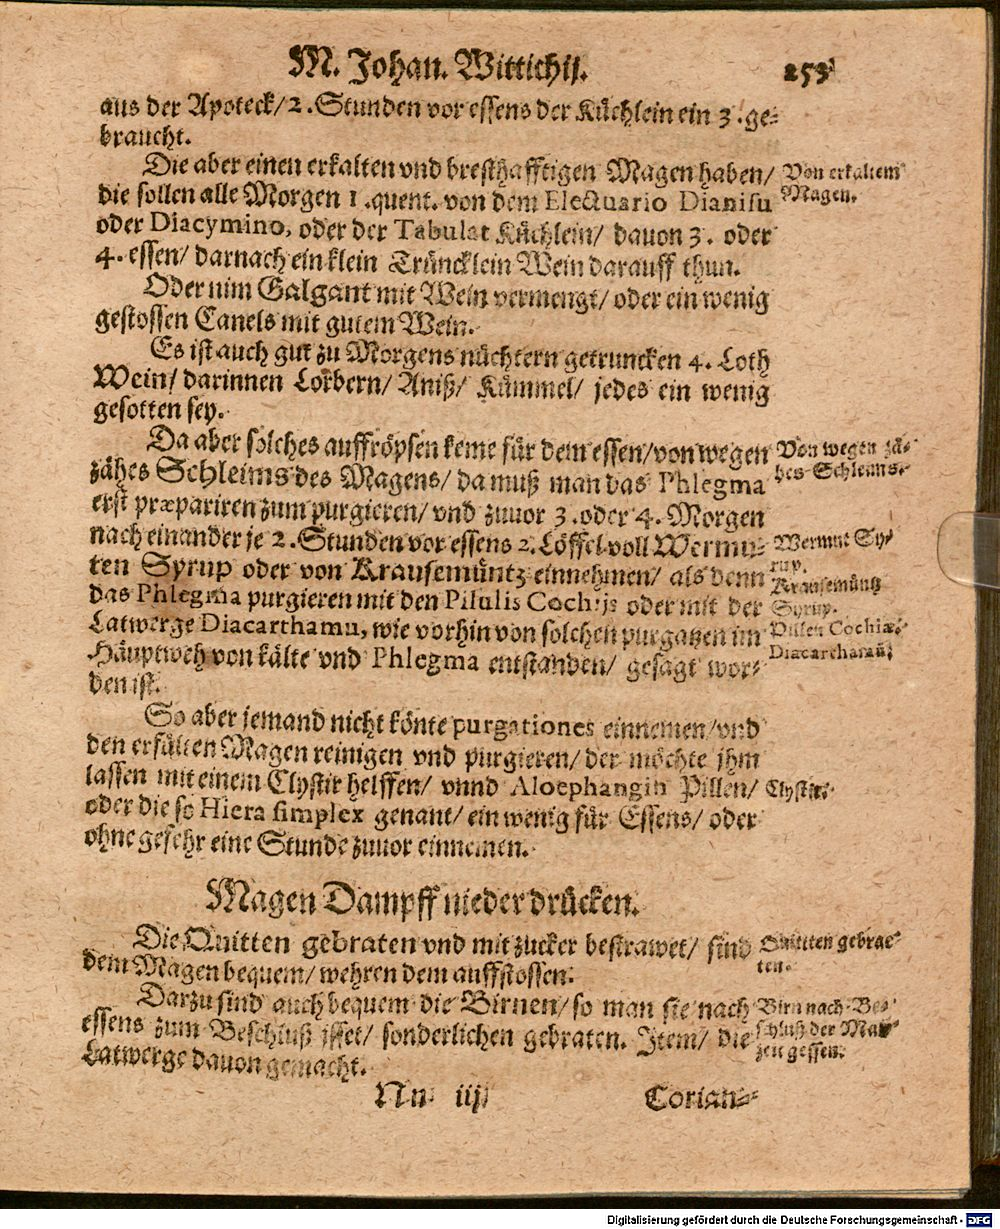 M. Johan. Wittichij. 253
aus der Apoteck/ 2. Stunden vor essens der Küchlein ein 3. ge-
braucht.
Die aber einen erkalten vnd bresthafftigen Magen haben/
Von erkaltem
die sollen alle Morgen 1. quent. von dem Electuario Dianisu
Magen.
oder Diacymino, oder der Tabulat Küchlein/ dauon 3. oder
4. essen/ darnach ein klein Trüncklein Wein darauff thun.
Oder nim Galgant mit Wein vermengt/ oder ein wenig
gestossen Canels mit gutem Wein.
Es ist auch gut zu Morgens nüchtern getruncken 4. Loth
Wein/ darinnen Lorbern/ Aniß/ Kümmel/ jedes ein wenig
gesotten sey.
Da aber solches auffröpsen keme für dem essen/ von wegen
Von wegen zä-
zähes Schleims des Magens/ da muß man das Phlegma
hes Schleims.
erst præpariren zum purgieren/ vnd zuuor 3. oder 4. Morgen
nach einander je 2. Stunden vor essens 2. Löffel voll Wermu-
Wermut Sy-
rup.
ten Syrup oder von Krausemüntz einnehmen/ als denn
Krausemüntz
das Phlegma purgieren mit den Pilulis Cochijs oder mit der
Syrup.
Latwerge Diacarthamu, wie vorhin von solchen purgatzen im
Pillen Cochiæ.
Häuptweh von kälte vnd Phlegma entstanden/ gesagt wor-
Diacarthamu.
den ist.
So aber jemand nicht könte purgationes einnemen/ vnd
den erfülten Magen reinigen vnd purgieren/ der möchte jhm
lassen mit einem Clystir helffen/ vnnd Aloephangin Pillen/
Clystir.
oder die so Hiera simplex genant/ ein wenig für Essens/ oder
ohne gefehr eine Stunde zuuor einnemen.
Magen Dampff nieder drücken.
Die Quitten gebraten vnd mit zucker bestrawet/ sind
Quitten gebra-
ten.
dem Magen bequem/ wehren dem auffstossen.
Darzu sind auch bequem die Birnen/ so man sie nach
Birn nach Be-
essens zum Beschluß isset/ sonderlichen gebraten. Item/ die
schluß der Mal-
zeit gessen.
Latwerge dauon gemacht.
Nn iij Corian-
Digitalisierung gefördert durch die Deutsche Forschungsgemeinschaft - DFG